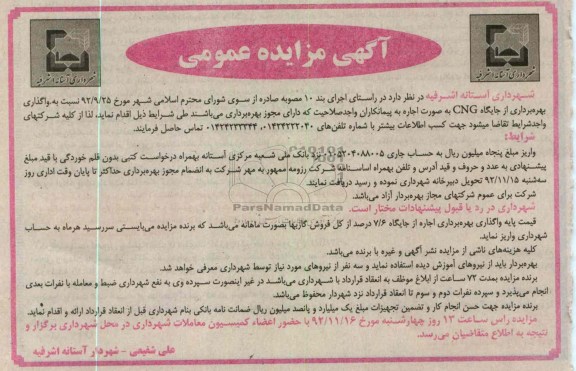 آگهی مزایده عمومی
شهرداری آستانه اشرفیه
شهرداری آستانه اشرفیه
شهرداری آستانه اشرفیه در نظر دارد در راستای اجرای بند ۱۰ مصوبه صادره از سوی شورای محترم اسلامی شهر مورخ ۹۲/۹/۲۵ نسبت به واگذاری
بهره‌برداری از جایگاه CNG به صورت اجاره به پیمانکاران واجدصلاحیت که دارای مجوز بهره‌برداری می‌باشند طی شرایط ذیل اقدام نماید، لذا از کلیه شرکتهای
واجدشرایط تقاضا میشود جهت کسب اطلاعات بیشتر با شماره تلفن‌های ۰۱۴۲۴۲۲۲۰۴۰، ۰۱۴۲۴۲۲۳۳۴۴ تماس حاصل فرمایند.
شرایط:
واریز مبلغ پنجاه میلیون ریال به حساب جاری نزد بانک ملی شعبه مرکزی آستانه بهمراه درخواست کتبی بدون قلم خوردگی با قید مبلغ
پیشنهادی به عدد و حروف و قید آدرس و تلفن بهمراه اساسنامه شرکت رزومه ممهور به مهر شرکت به انضمام مجوز بهره‌برداری حداکثر تا پایان وقت اداری روز
سه‌شنبه ۹۲/۱۱/۱۵ تحویل دبیرخانه شهرداری نموده و رسید دریافت نمایند.
شرکت برای عموم شرکتهای مجاز بهره‌بردار آزاد می‌باشد.
شهرداری در رد یا قبول پیشنهادات مختار است.
ParsNamadData
قیمت پایه واگذاری بهره‌برداری اجاره از جایگاه ۷/۶ درصد از کل فروش گازبها بصورت ماهانه می‌باشد که برنده مزایده می‌بایستی سررسید هرماه به حساب
شهرداری واریز نماید.
کلیه هزینه‌های ناشی از مزایده نشر آگهی و غیره با برنده می‌باشد.
بهره‌بردار باید از نیروهای آموزش دیده استفاده نماید و سه نفر از نیروهای مورد نیاز توسط شهرداری معرفی خواهد شد.
برنده مزایده بمدت ۷۲ ساعت از ابلاغ موظف به انعقاد قرارداد با شهرداری می‌باشد در غیر اینصورت سپرده وی به نفع شهرداری ضبط و معامله با نفرات بعدی
انجام می‌پذیرد و سپرده نفرات دوم و سوم تا انعقاد قرارداد نزد شهردار محفوظ می‌باشد.
برنده مزایده جهت حسن انجام کار و تضمین تجهیزات مبلغ یک میلیارد و پانصد میلیون ریال ضمانت نامه بانکی بنام شهرداری قبل از انعقاد قرارداد ارائه و اقدام نماید.
مزایده راس ساعت ۱۳ روز چهارشنبه مورخ ۹۲/۱۱/۱۶ با حضور اعضاء کمیسیون معاملات شهرداری در محل شهرداری برگزار و
نتیجه به اطلاع متقاضیان می‌رسد.
علی شفیعی - شهردار آستانه اشرفیه